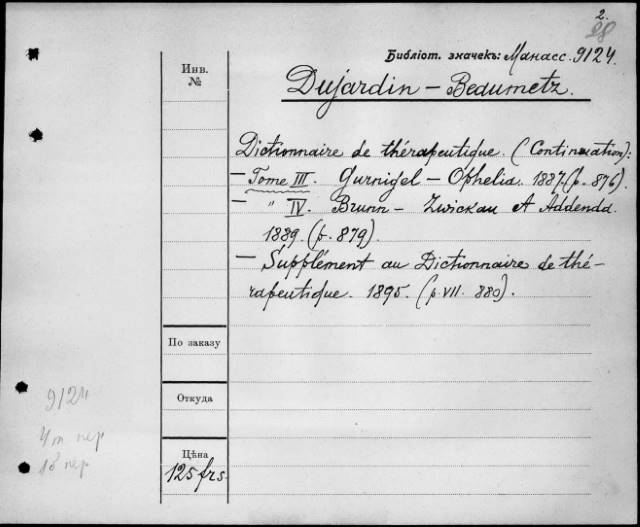 2.
28
Библіот. значекъ: Манасс. 9124.
Инв.
№
Dujardin – Beaumetz.
Dictionnaire de thérapeutique. (Continuation):
– Tome III. Gurnigel – Ophelia. 1887. (p. 876).
– " IV. Brunn – Zwickau et Addenda.
1889. (p. 879).
– Supplément au Dictionnaire de thé-
rapeutique. 1895. (p. VII. 880).
По заказу
Откуда
Цѣна
125 frs.
9124
4 т пер
1 б пер